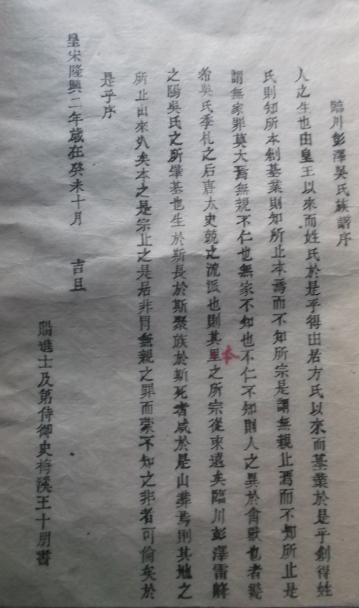 臨川彭澤吳氏族譜序
人之生也由皇王以來而姓氏於是乎得由若方氏以來而基業於是乎創得姓
氏則知所本創基業則知所止本焉而不知所宗是謂無親止焉而不知所止是
謂無家罪莫大焉無親不仁也無家不知也不仁不知則人之異於禽獸也者幾
希吳氏季札之后喜太史兢之流派也則其里之所宗從來遠矣臨川彭澤雷解
本
之陽吳氏之所肇基也生於斯長於斯聚族於斯死者咸於是山葬焉則其地之
所止由來久矣本之是宗止之是居非胃無親之罪而蒙不知之非者可倫矣於
是乎序
皇宋隆興二年歲在癸未十月 吉旦
賜進士及第侍御史梅溪王十朋書